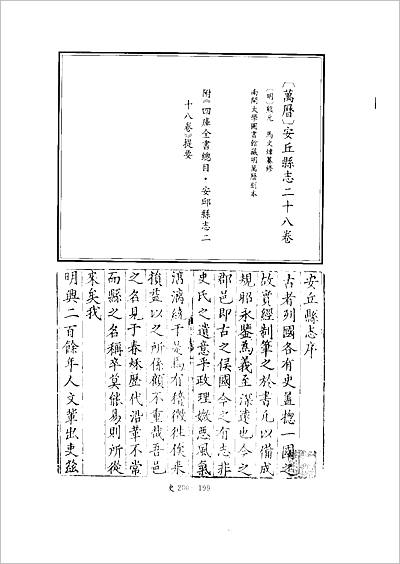 〔萬曆〕安丘縣志二十八卷
〔明〕熊元 馬文煒纂修
南開大學圖書館藏明萬曆刻本
附《四庫全書總目·安邱縣志二
十八卷》提要
安丘縣志序
古者列國各有史蓋摠一國之
故實經制筆之於書凡以備成
規耶永鑒為義至深遠也今之
郡邑即古之侯國今之有志非
史氏之遺意乎政理媺惡風氣
澆漓繇于是焉有稽徵往俟来
損益以之所係顧不重哉吾邑
之名見于春秋歷代沿革不常
而縣之名稱卒莫能易則所從
來矣我
明興二百餘年人文軰出吏玆
史 200-199